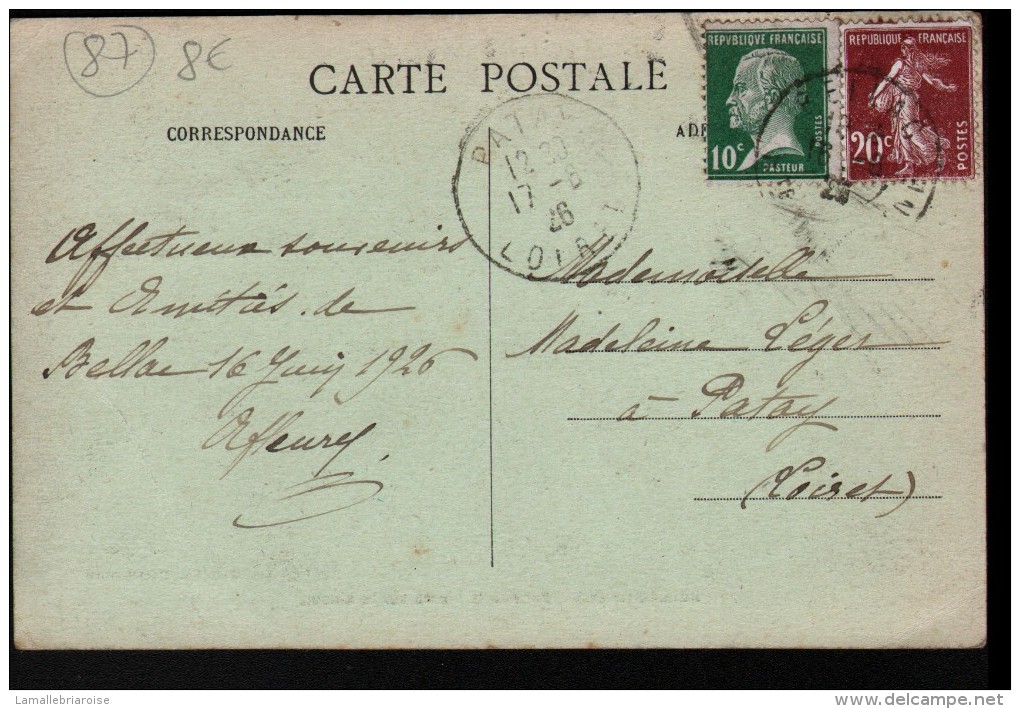 (87) 8€
CARTE POSTALE
CORRESPONDANCE
REPVBLIQVE FRANÇAISE
10c
POSTES
PASTEUR
REPUBLIQUE FRANÇAISE
20c
POSTES
PATAY
12
17 -6
26
LOIRET
Affectueux souvenirs
et Amitiés de
Bellac 16 Juin 1926
Afleury
Mademoiselle
Madeleine Léger
à Patay
(Loiret)
Lamallebriaroise
www.delcampe.net